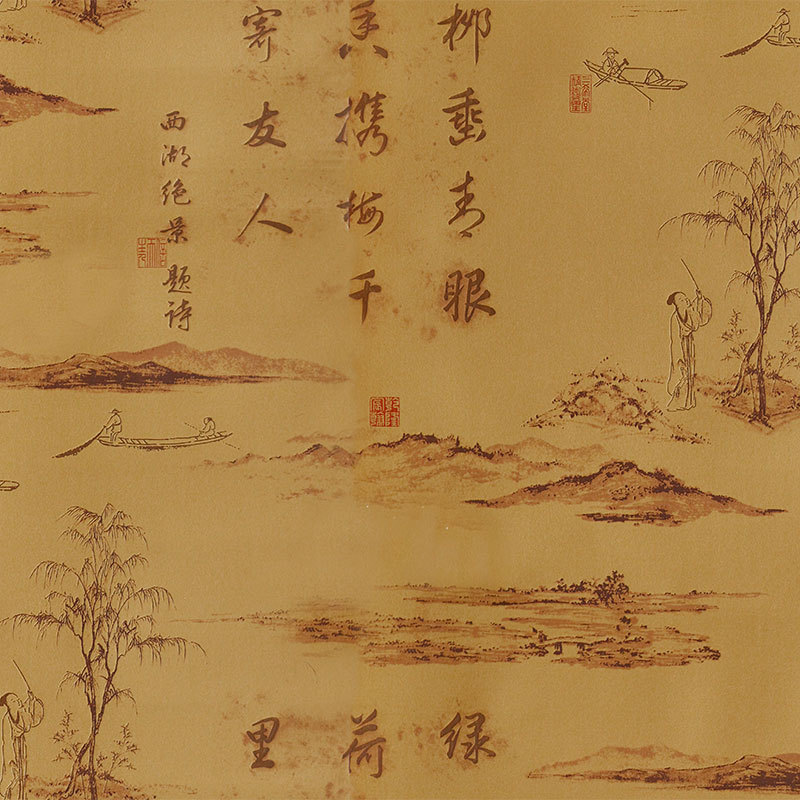 柳垂青眼
香携梅千
寄友人
西湖绝景 题诗
绿
荷
里